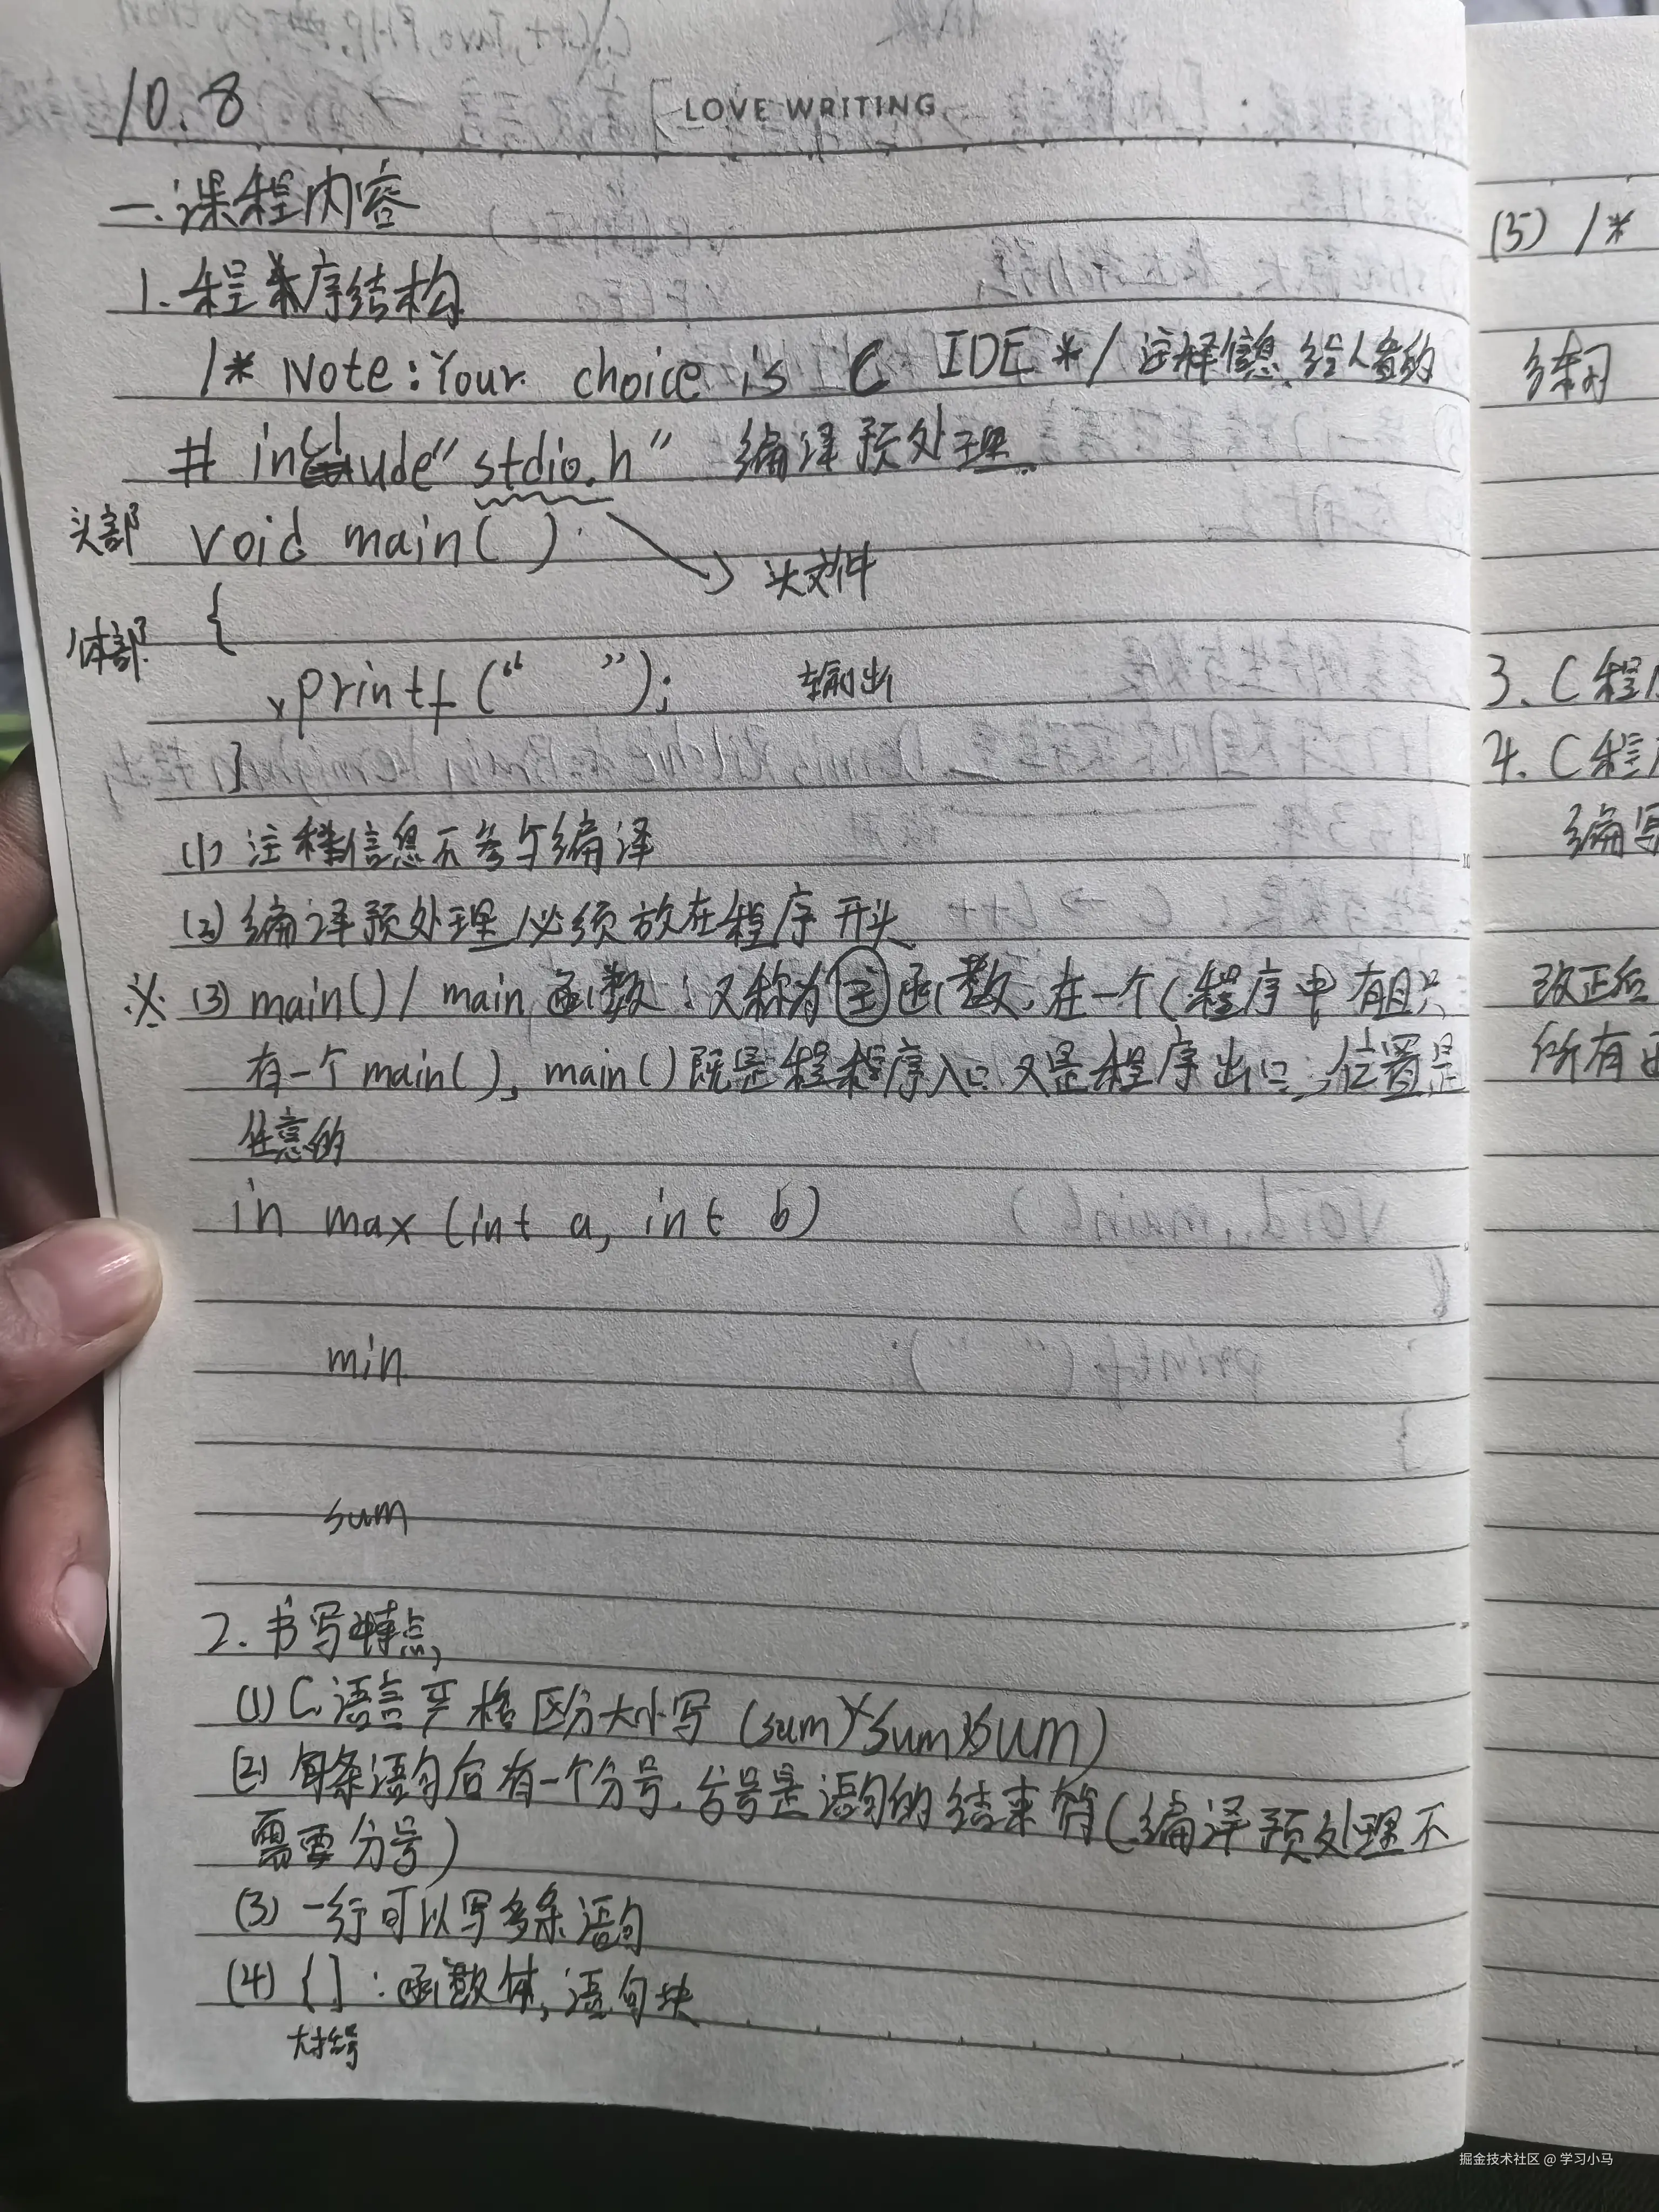 10.8
LOVE WRITING
一.课程内容
1.程序结构
/* Note:Your choice is C IDE */ 注释信息.给人看的
# include"stdio.h" 编译预处理.
头部 void main( )
头文件
{
体部
printf(“ ”); 输出
}
(1) 注释信息不参与编译
(2) 编译预处理必须放在程序开头
※ (3) main()/ main函数:又称为主函数,在一个C程序中有且只
有一个main(), main()既是程序入口又是程序出口,位置是
任意的
in max (int a, int b)
min
sum
2.书写特点,
(1) C语言严格区分大小写 (sum)Sum)SUM)
(2) 每条语句后有一个分号.分号是语句的结束符(编译预处理不
需要分号)
(3) 一行可以写多条语句
(4) { } :函数体,语句块
大括号
(5) /*
练习
3. C程
4. C程
编写
改正后
所有
掘金技术社区 @ 学习小马